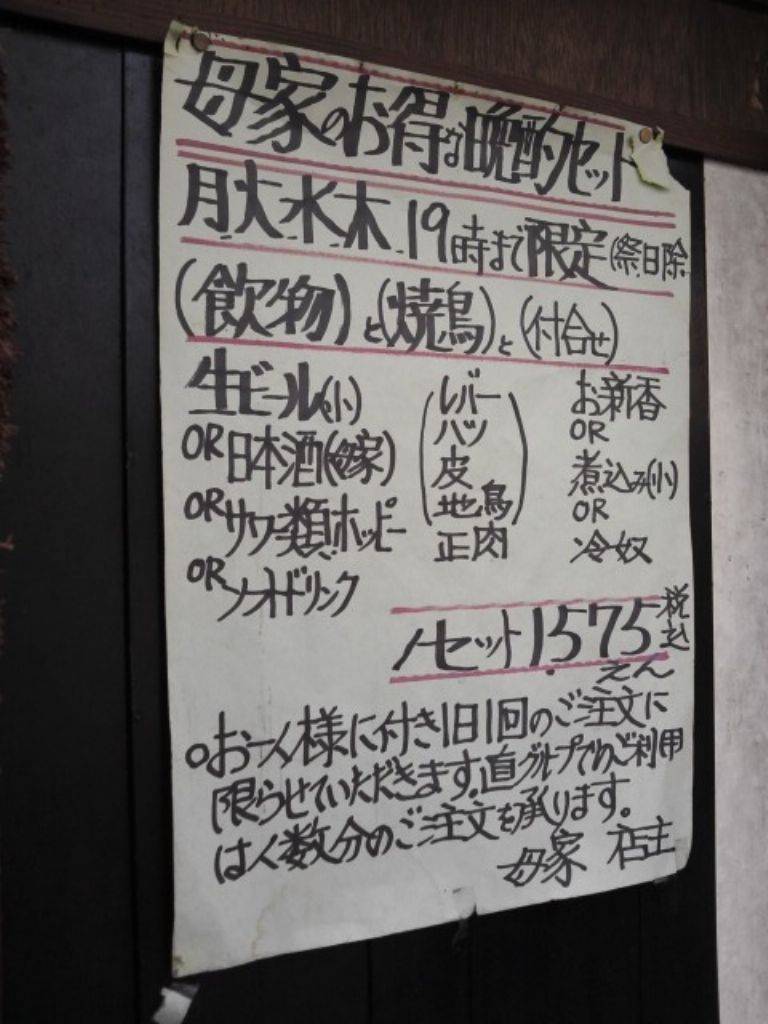 母家のお得な晩酌セット
月火水木 19時まで限定(祭日除
(飲物)と(焼鳥)と(付合せ)
生ビール(小)
OR日本酒(母家)
ORサワー類ホッピー
ORソフトドリンク
レバー
ハツ
皮
地鳥
正肉
お新香
OR
煮込み(小)
OR
冷奴
1セット1575税込
えん
○お一人様に付き1日1回のご注文に
限らせていただきます。直グループでのご利用
は人数分のご注文を承ります。
母家 店主